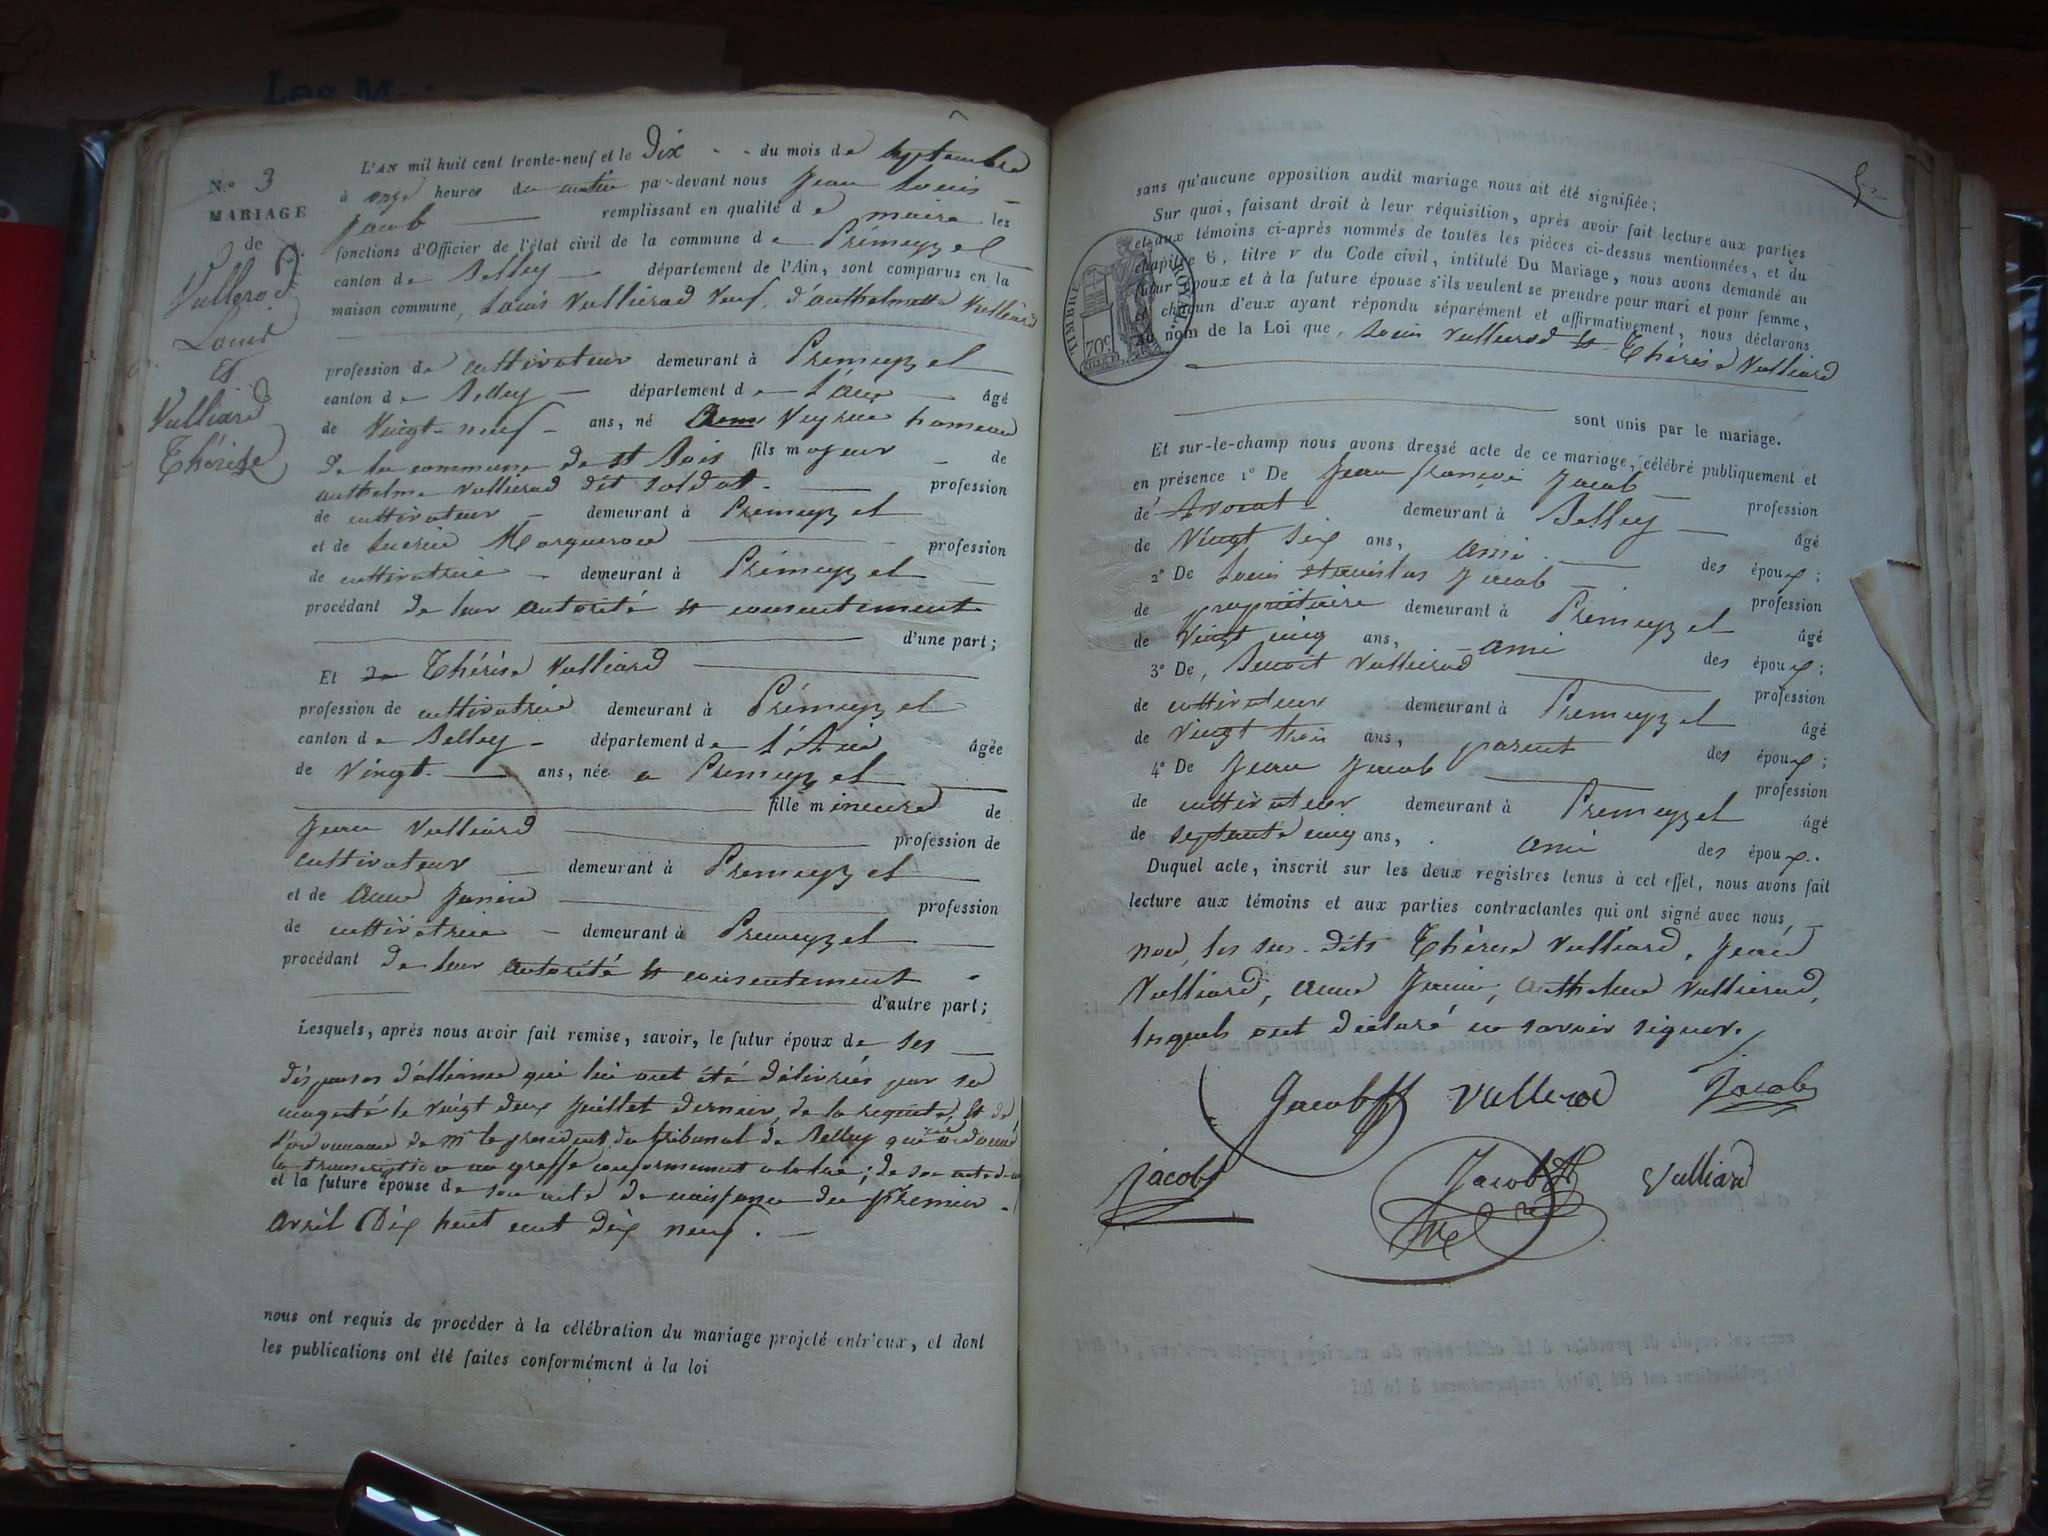 L'AN mil huit cent trente-neuf et le Dix du mois de septembre
N.° 3
à onze heures du matin par-devant nous Jean Louis
MARIAGE
Jacob remplissant en qualité de maire les
de
fonctions d'Officier de l'état civil de la commune de Prémeyzel
Vullerod
canton de Belley département de l'Ain, sont comparus en la
Louis
maison commune, Louis Vullierod veuf d'anthelmette Vulliard
et
Vulliard
Thérèse
profession de cultivateur demeurant à Prémeyzel
canton de Belley département de l'Ain âgé
de Vingt-neuf ans, né Veyrin hameau
de la commune de st Bois fils majeur de
anthelme Vullierod dit soldat profession
de cultivateur demeurant à Prémeyzel
et de Margueron profession
de cultivatrice demeurant à Prémeyzel
procédant de leur autorité et consentement
d'une part;
Et de Thérèse Vulliard
profession de cultivatrice demeurant à Prémeyzel
canton de Belley département de l'Ain âgée
de Vingt ans, née a Prémeyzel
fille mineure de
Jean Vulliard profession de
cultivateur demeurant à Prémeyzel
et de anne Janin profession
de cultivatrice demeurant à Prémeyzel
procédant de leur autorité et consentement
d'autre part;
Lesquels, après nous avoir fait remise, savoir, le futur époux de ses
dispenses d'alliance qui lui ont été délivrées par sa
majesté le vingt deux Juillet dernier, de la requête et de
l'ordonnance de Mr le president du tribunal de Belley qui a
la transcription au greffe conformement a la loi; de son acte de
et la future épouse de son acte de naissance du premier
avril Dix huit cent dix neuf.
nous ont requis de procéder à la célébration du mariage projeté entr'eux, et dont
les publications ont été faites conformément à la loi
sans qu'aucune opposition audit mariage nous ait été signifiée;
Sur quoi, faisant droit à leur réquisition, après avoir fait lecture aux parties
et aux témoins ci-après nommés de toutes les pièces ci-dessus mentionnées, et du
chapitre 6, titre v du Code civil, intitulé Du Mariage, nous avons demandé au
futur époux et à la future épouse s'ils veulent se prendre pour mari et pour femme,
et chacun d'eux ayant répondu séparément et affirmativement, nous déclarons
au nom de la Loi que, Louis Vullierod et Thérèse Vulliard
TIMBRE ROYAL
70c
sont unis par le mariage.
Et sur-le-champ nous avons dressé acte de ce mariage, célébré publiquement et
en présence 1° De Jean françois Jacob profession
de Avocat demeurant à Belley âgé
de Vingt six ans, ami des époux;
2° De Louis stanislas Jacob profession
de propriétaire demeurant à Prémeyzel âgé
de Vingt cinq ans, ami des époux;
3° De, Benoit Vullierod profession
de cultivateur demeurant à Prémeyzel âgé
de vingt trois ans, parent des époux;
4° De Jean Jacob profession
de cultivateur demeurant à Prémeyzel âgé
de septante cinq ans, ami des époux.
Duquel acte, inscrit sur les deux registres tenus à cet effet, nous avons fait
lecture aux témoins et aux parties contractantes qui ont signé avec nous,
non, les sus-dits Thérèse Vulliard, Jean
Vulliard, anne Janin, anthelme Vullierod,
lesquels ont déclaré ne savoir signer.
Jacob Vullerod Jacob
Jacob Jacob Vulliard